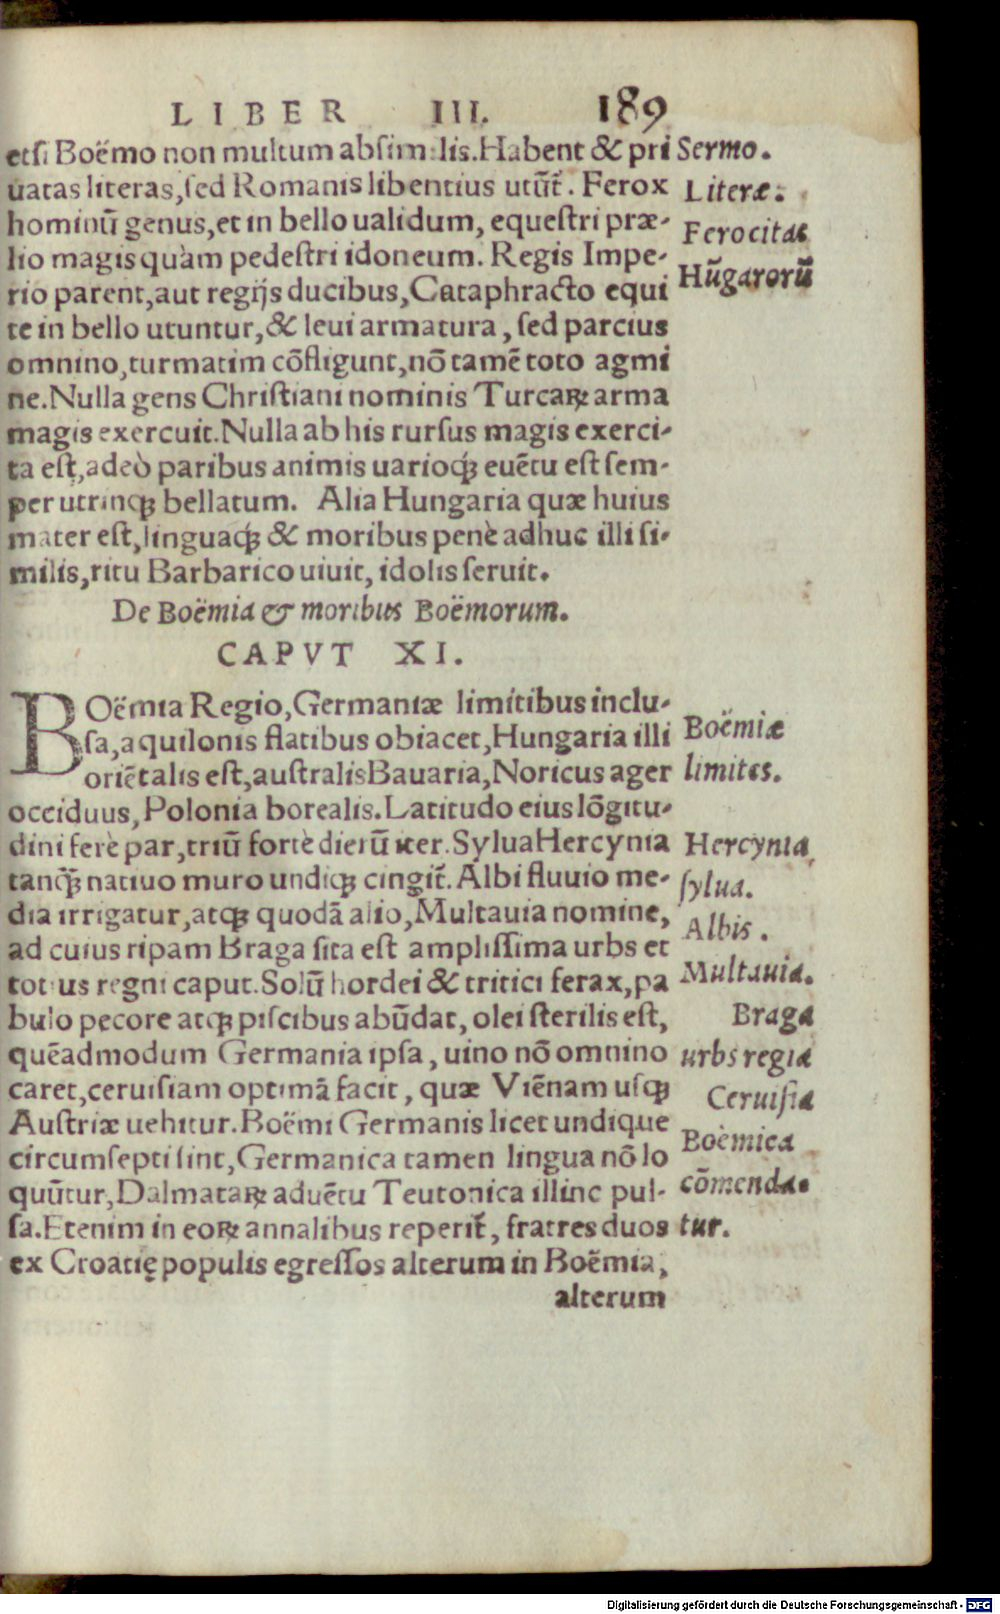 LIBER III. 189
etsi Boëmo non multum absimilis. Habent & pri
uatas literas, sed Romanis libentius utũt̃. Ferox
hominũ genus, et in bello ualidum, equestri præ-
lio magis quàm pedestri idoneum. Regis Impe-
rio parent, aut regijs ducibus, Cataphracto equi
te in bello utuntur, & leui armatura, sed parcius
omnino, turmatim cõfligunt, nõ tamẽ toto agmi
ne. Nulla gens Christiani nominis Turcaꝝ arma
magis exercuit. Nulla ab his rursus magis exerci-
ta est, adeò paribus animis uarioq́ꝫ euẽtu est sem-
per utrinqꝫ bellatum. Alia Hungaria quæ huius
mater est, linguaq́ꝫ & moribus penè adhuc illi si-
milis, ritu Barbarico uiuit, idolis seruit.
De Boëmia & moribus Boëmorum.
CAPVT XI.
BOëmia Regio, Germaniæ limitibus inclu-
sa, aquilonis flatibus obiacet, Hungaria illi
oriẽtalis est, australis Bauaria, Noricus ager
occiduus, Polonia borealis. Latitudo eius lõgitu-
dini ferè par, triũ fortè dierũ iter. Sylua Hercynia
tanq̃ꝫ natiuo muro undiqꝫ cingit̃. Albi fluuio me-
dia irrigatur, atqꝫ quodã alio, Multauia nomine,
ad cuius ripam Braga sita est amplissima urbs et
totius regni caput. Solũ hordei & tritici ferax, pa
bulo pecore atqꝫ piscibus abũdat, olei sterilis est,
quẽadmodum Germania ipsa, uino nõ omnino
caret, ceruisiam optimã facit, quæ Viẽnam usqꝫ
Austriæ uehitur. Boëmi Germanis licet undique
circumsepti sint, Germanica tamen lingua nõ lo
quũtur, Dalmataꝝ aduẽtu Teutonica illinc pul-
sa. Etenim in eoꝝ annalibus reperit̃, fratres duos
ex Croatię populis egressos alterum in Boëmia,
alterum
Sermo.
Literæ.
Ferocitas
Hũgarorũ
Boëmiæ
limites.
Hercynia
sylua.
Albis.
Multauia.
Braga
urbs regia
Ceruisia
Boëmica
cõmenda-
tur.
Digitalisierung gefördert durch die Deutsche Forschungsgemeinschaft - DFG